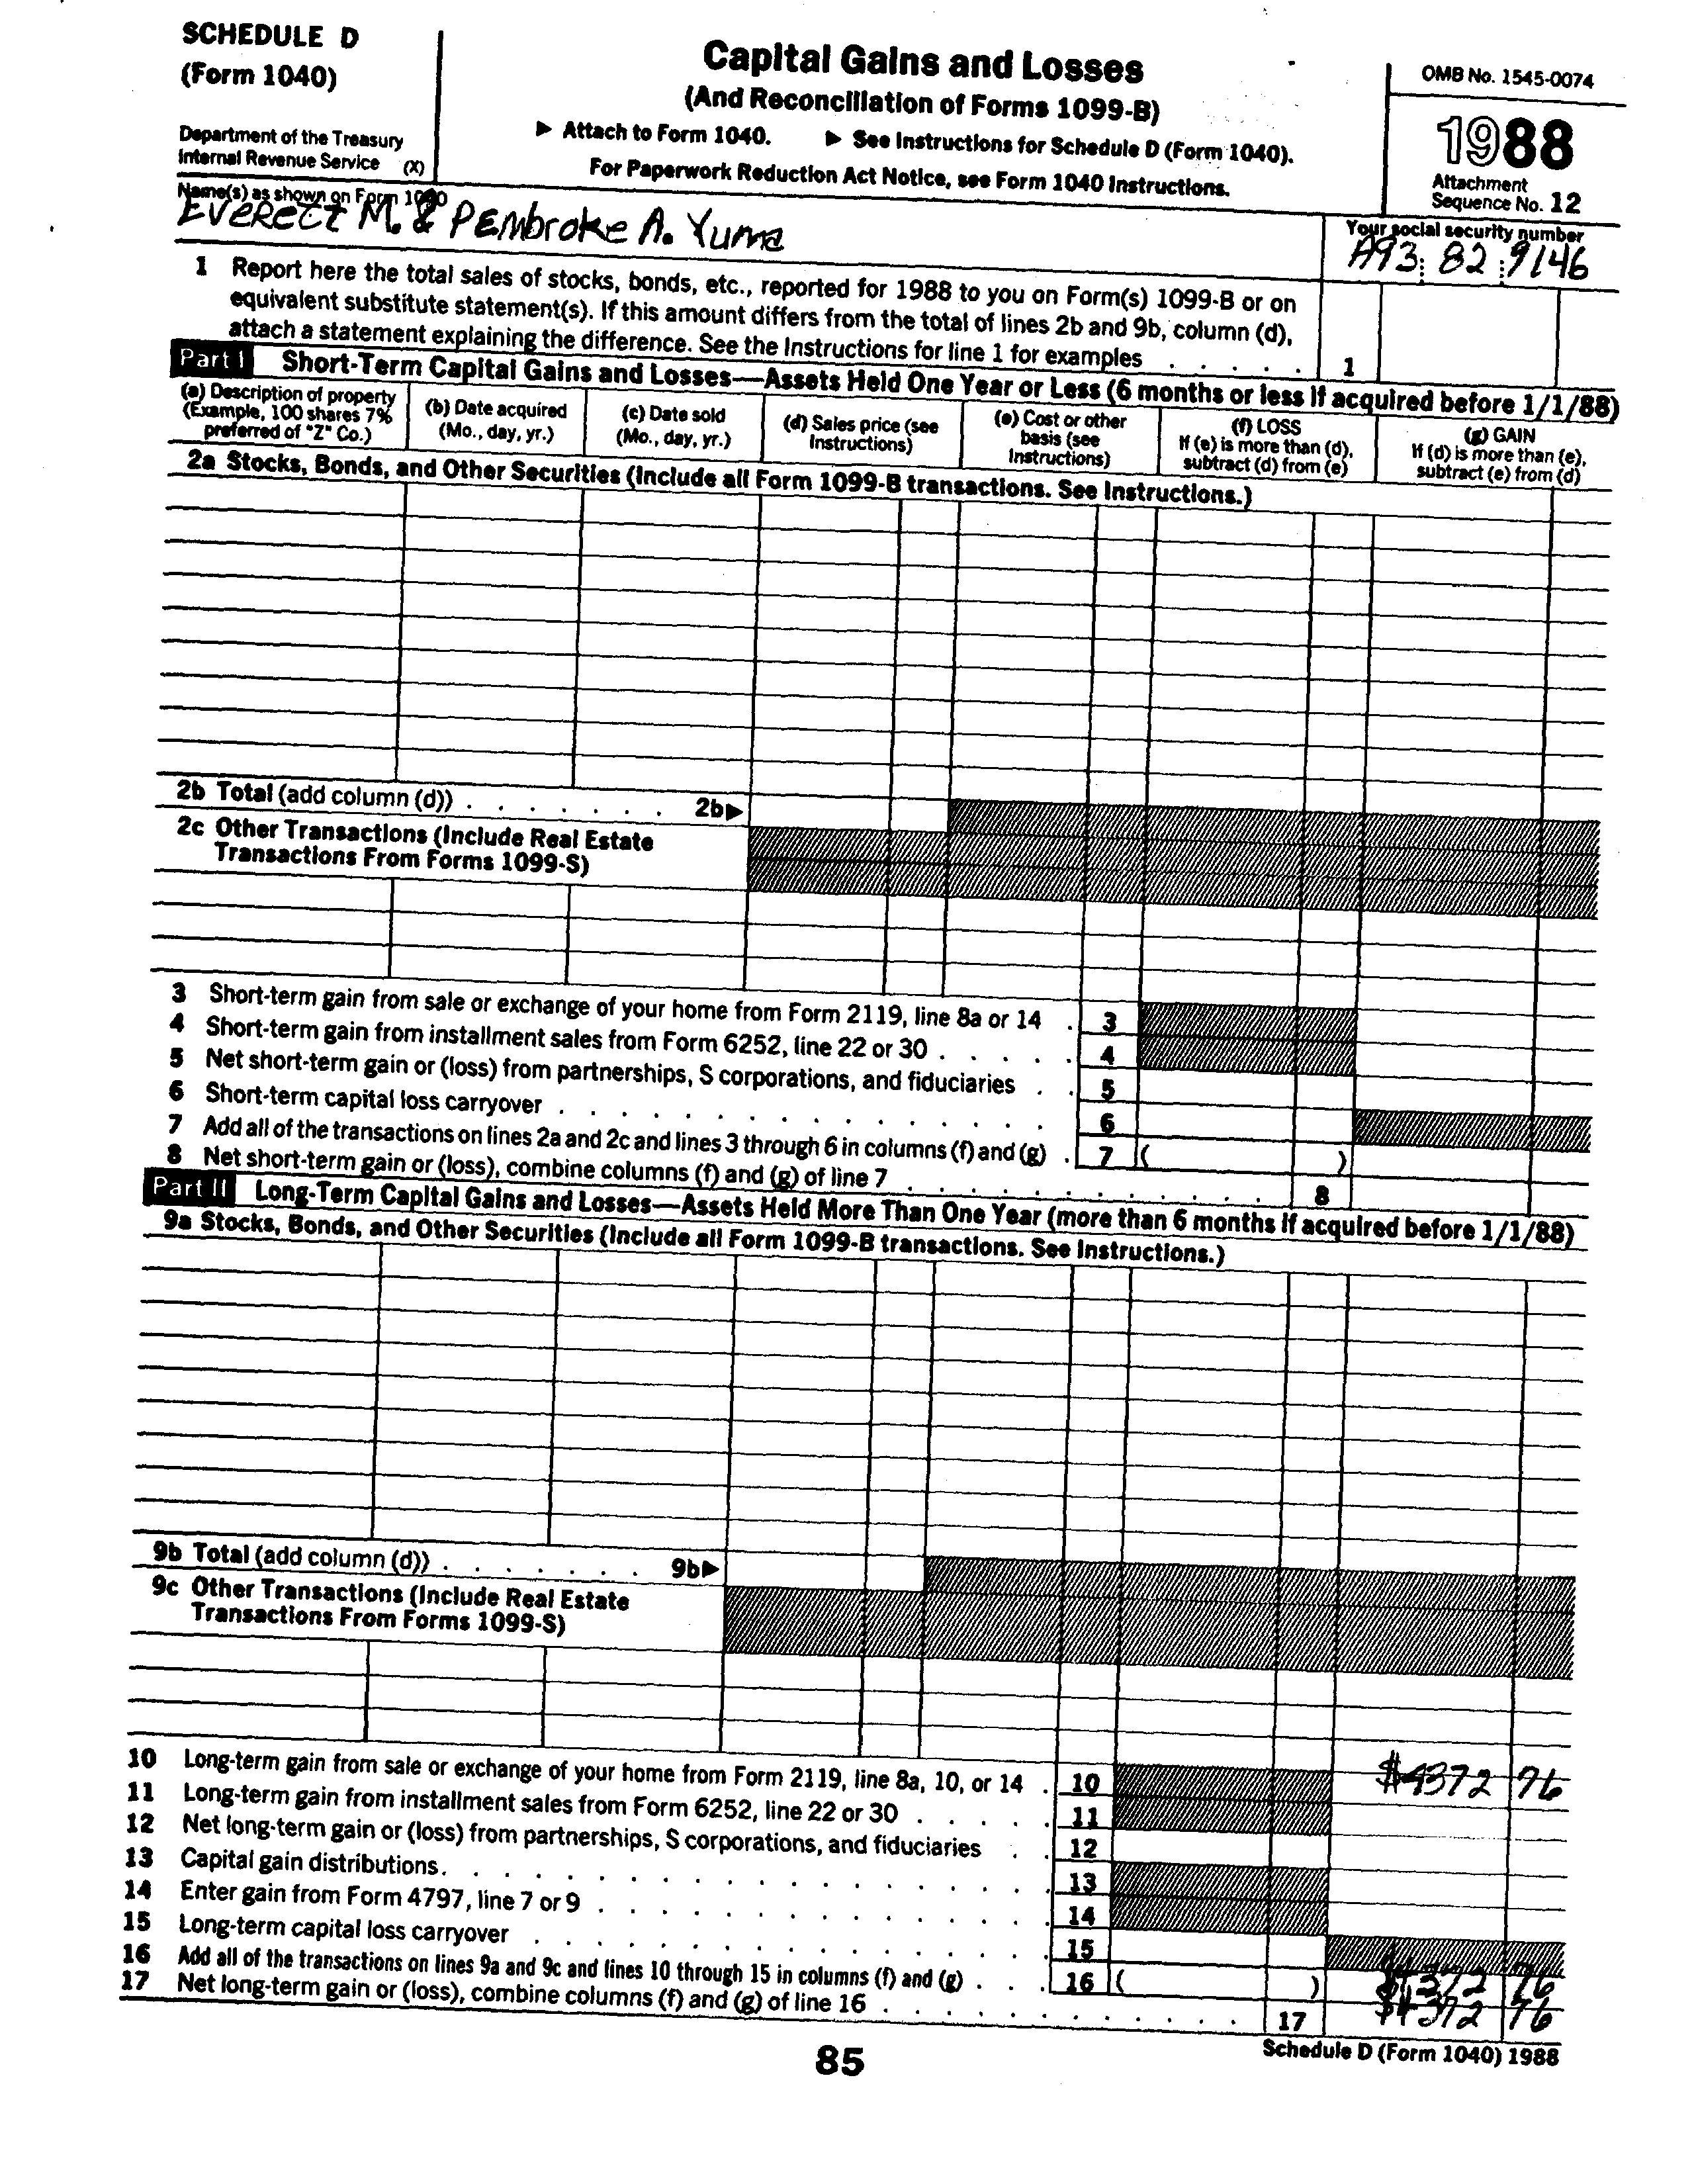 SCHEDULE D
(Form 1040)
Department of the Treasury
Internal Revenue Service (X)
Capital Gains and Losses
(And Reconciliation of Forms 1099-B)
▶ Attach to Form 1040. ▶ See Instructions for Schedule D (Form 1040).
For Paperwork Reduction Act Notice, see Form 1040 Instructions.
OMB No. 1545-0074
1988
Attachment
Sequence No. 12
Name(s) as shown on Form 1040
Everett M. & Pembroke A. Yuma
Your social security number
A93 82 9146
1 Report here the total sales of stocks, bonds, etc., reported for 1988 to you on Form(s) 1099-B or on
equivalent substitute statement(s). If this amount differs from the total of lines 2b and 9b, column (d),
attach a statement explaining the difference. See the Instructions for line 1 for examples . . . . . 1
Part I Short-Term Capital Gains and Losses—Assets Held One Year or Less (6 months or less if acquired before 1/1/88)
(a) Description of property
(Example, 100 shares 7%
preferred of "Z" Co.)
(b) Date acquired
(Mo., day, yr.)
(c) Date sold
(Mo., day, yr.)
(d) Sales price (see
Instructions)
(e) Cost or other
basis (see
Instructions)
(f) LOSS
If (e) is more than (d),
subtract (d) from (e)
(g) GAIN
If (d) is more than (e),
subtract (e) from (d)
2a Stocks, Bonds, and Other Securities (Include all Form 1099-B transactions. See Instructions.)
2b Total (add column (d)) . . . . . . . 2b▶
2c Other Transactions (Include Real Estate
Transactions From Forms 1099-S)
3 Short-term gain from sale or exchange of your home from Form 2119, line 8a or 14 . 3
4 Short-term gain from installment sales from Form 6252, line 22 or 30 . . . . . 4
5 Net short-term gain or (loss) from partnerships, S corporations, and fiduciaries . . 5
6 Short-term capital loss carryover . . . . . . . . . . . . . . 6
7 Add all of the transactions on lines 2a and 2c and lines 3 through 6 in columns (f) and (g) . 7 ( )
8 Net short-term gain or (loss), combine columns (f) and (g) of line 7 . . . . . . . . . . . . 8
Part II Long-Term Capital Gains and Losses—Assets Held More Than One Year (more than 6 months if acquired before 1/1/88)
9a Stocks, Bonds, and Other Securities (Include all Form 1099-B transactions. See Instructions.)
9b Total (add column (d)) . . . . . . . 9b▶
9c Other Transactions (Include Real Estate
Transactions From Forms 1099-S)
10 Long-term gain from sale or exchange of your home from Form 2119, line 8a, 10, or 14 . 10 $4372 76
11 Long-term gain from installment sales from Form 6252, line 22 or 30 . . . . . 11
12 Net long-term gain or (loss) from partnerships, S corporations, and fiduciaries . . 12
13 Capital gain distributions. . . . . . . . . . . . . . . . . 13
14 Enter gain from Form 4797, line 7 or 9 . . . . . . . . . . . . . 14
15 Long-term capital loss carryover . . . . . . . . . . . . . . 15
16 Add all of the transactions on lines 9a and 9c and lines 10 through 15 in columns (f) and (g) . . . 16 ( ) $4372 76
17 Net long-term gain or (loss), combine columns (f) and (g) of line 16 . . . . . . . . . . . . 17 $4372 76
85
Schedule D (Form 1040) 1988